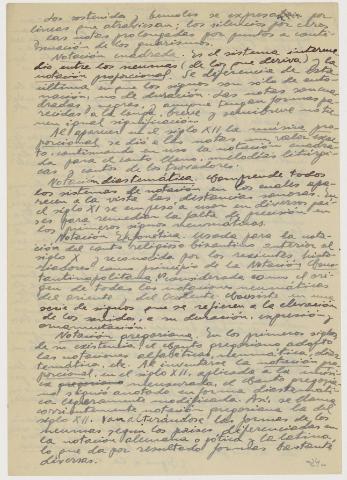 dos sostenidos y bemoles se expresan por
líneas que atraviesan; los silencios por ceros,
las notas prolongadas por puntos a conti-
nuación de los guarismos.
Notación cuadrada. Es el sistema interme-
dio entre los neumas (de los que deriva) y la
notación proporcional. Se diferencia de esta
última en que los signos son sólo de ento-
nación, no de duración. Las notas son cua-
dradas, negras, y aunque tengan formas pa-
recidas a la longa, breve y semibreve no tie-
nen igual significación.
Al aparecer en el siglo XII, la música pro-
porcional se dió a las notas un valor exac-
to, continuando en uso la notación cuadra-
da para el canto llano, melodías litúrgi-
cas y cantos de los trovadores.
Notación diastemática. Comprende todos
los sistemas de notación en los cuales apa-
recen a la vista las distancias sonoras. En
el siglo XI se empezó a usar en diversos paí-
ses para remediar la falta de precisión en
los primeros signos neumáticos.
Notación Ekfonética. Usada para la nota-
ción del canto religioso bizantino anterior al
siglo X y reconocida por los recientes histo-
riadores como principio de la Notación Cons-
tantinopolitana, considerada como el ori-
gen de todas las notaciones neumáticas
del oriente y del Occidente. Consiste en una
serie de signos que se refieren a la elevación
de los sonidos, a su duración, expresión y
ornamentación.
Notación gregoriana. En los primeros siglos
de su existencia, el canto gregoriano adoptó
las notaciones alfabética, neumática, dias-
temática, etc. Al inventarse la notación pro-
porcional, en el siglo XII, aplicada a la músi-
ca mensurada, el canto gregoria-
no siguió anotado en forma diastemáti-
ca ligeramente modificada. Así, se llama
corrientemente notación gregoriana la del
siglo XII. las formas de los
neumas según los países, diferenciadas en
la notación alemana o gótica y la latina
lo que da por resultado formas bastante
diversas.